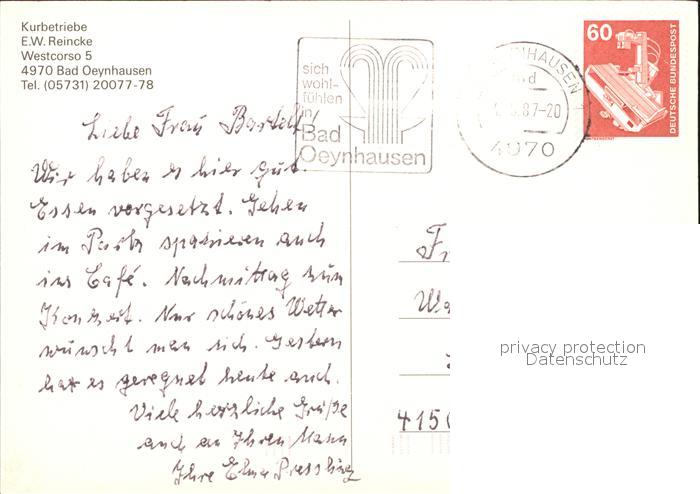 Kurbetriebe
E.W. Reincke
Westcorso 5
4970 Bad Oeynhausen
Tel. (05731) 20077-78
sich
wohl-
fühlen
in
Bad
Oeynhausen
OEYNHAUSEN 1
.87-20
4970
60
DEUTSCHE BUNDESPOST
Liebe Frau
Wir haben es hier gut.
Essen vorgesetzt. Gehen
im Park spazieren auch
ins Café. Nachmittag zum
Konzert. Nur schönes Wetter
wünscht man sich. Gestern
hat es geregnet heute auch.
Viele herzliche Grüße
auch an Ihren Mann
Ihre
Fr
Wa
415
privacy protection
Datenschutz